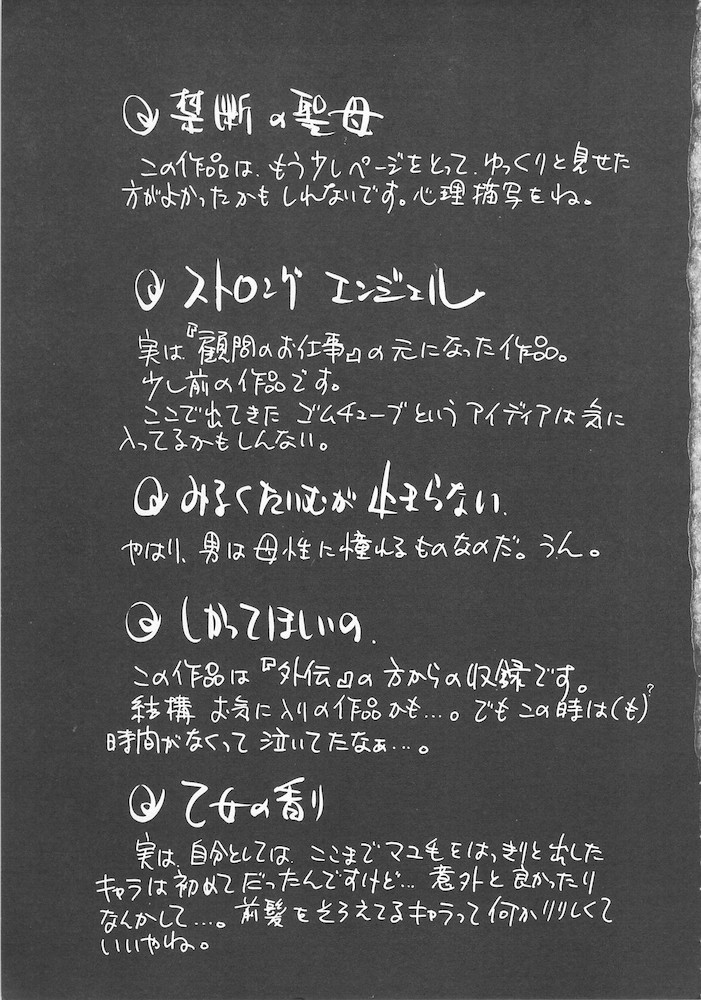 禁断の聖母
この作品は、もう少しページをとって、ゆっくりと見せた
方がよかったかもしれないです。心理描写をね。
ストロング エンジェル
実は『顧問のお仕事』の元になった作品。
少し前の作品です。
ここで出てきた ゴムチューブという アイディアは気に
入ってるかもしんない。
みるくたいむが止まらない、
やはり、男は母性に憧れるものなのだ。うん。
しかってほしいの、
この作品は『外伝』の方からの収録です。
結構 お気に入りの作品かも…。でもこの時は(も)?
時間がなくって泣いてたなぁ…。
乙女の香り
実は、自分としては、ここまでマユ毛をはっきりと出した
キャラは初めてだったんですけど… 意外と良かったり
なんかして…。前髪をそろえてるキャラって何かりりしくて
いいやね。